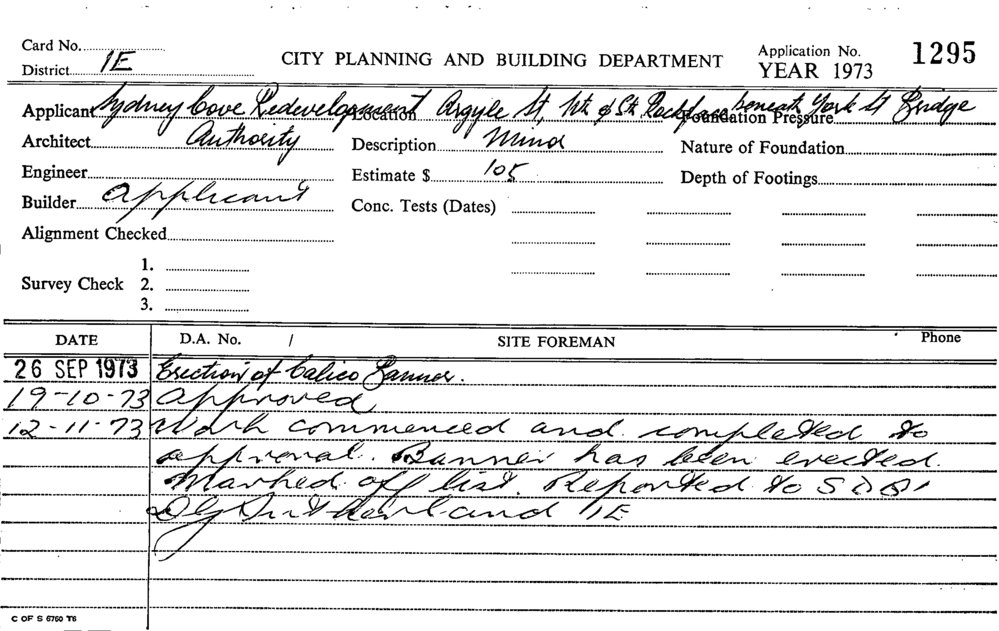 Card No.
District 1E
CITY PLANNING AND BUILDING DEPARTMENT
Application No. 1295
YEAR 1973
Applicant Sydney Cove Redevelopment Location Argyle St, Foundation Pressure beneath York St Bridge
Architect Authority Description Minor Nature of Foundation
Engineer Estimate $ 105 Depth of Footings
Builder Applicant Conc. Tests (Dates)
Alignment Checked
Survey Check 1.
2.
3.
DATE D.A. No. / SITE FOREMAN Phone
26 SEP 1973 Erection of Calico Banner.
19-10-73 Approved
12-11-73 Work commenced and completed to
approval. Banner has been erected.
Marked off list. Reported to
1E
C OF S 6760 T6